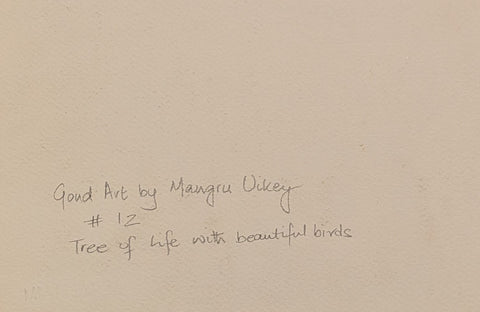 Gond Art by Mangru Uikey
# 12
Tree of Life with beautiful birds